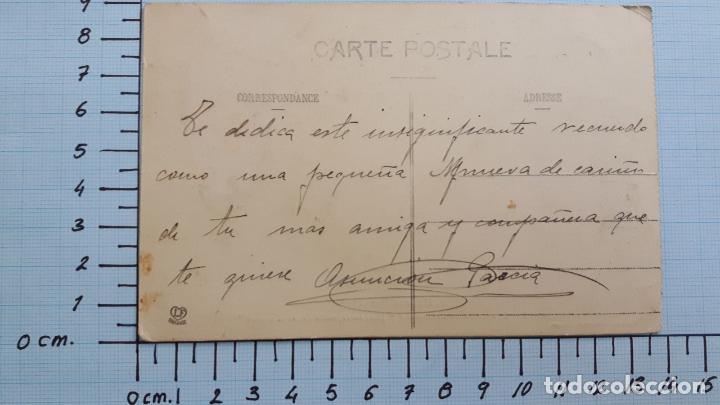 CARTE POSTALE
CORRESPONDANCE ADRESSE
Te dedica este insignificante recuerdo
como una pequeña Mmueva de cariño
de tu mas amiga y compañera que
te quiere Asunción García
9
8
7
6
5
4
3
2
1
0 cm.
0 cm. 1 2 3 4 5 6 7 8 9 10 11 12 13 14 15
todocoleccion